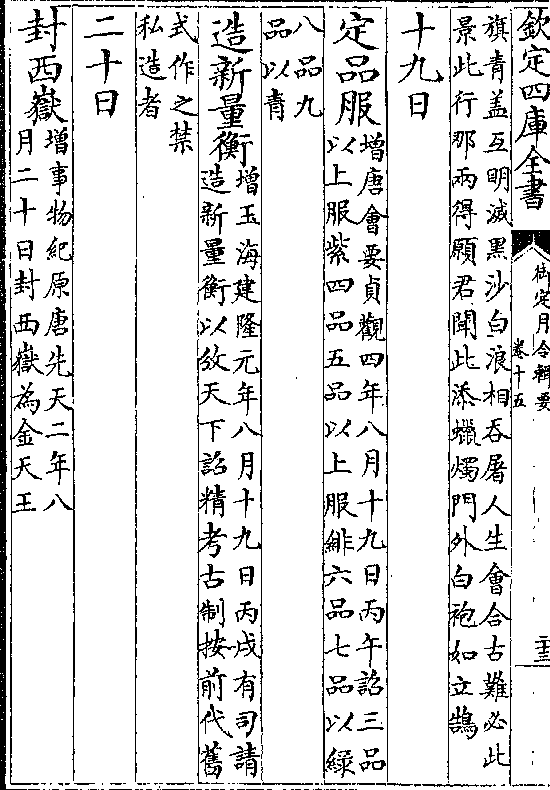 欽定四庫全書
御定月令輯要
卷十五
二十三
旗青盖互明滅黑沙白浪相吞屠人生會合古難必此
景此行那兩得願君聞此添蠟燭門外白袍如立鵠
十九日
定品服
增唐會要貞觀四年八月十九日丙午詔三品
以上服紫四品五品以上服緋六品七品以緑
八品九
品以青
造新量衡
增玉海建隆元年八月十九日丙戌有司請
造新量衡以頒天下詔精考古制按前代舊
式作之禁
私造者
二十日
封西嶽
增事物紀原唐先天二年八
月二十日封西嶽為金天王